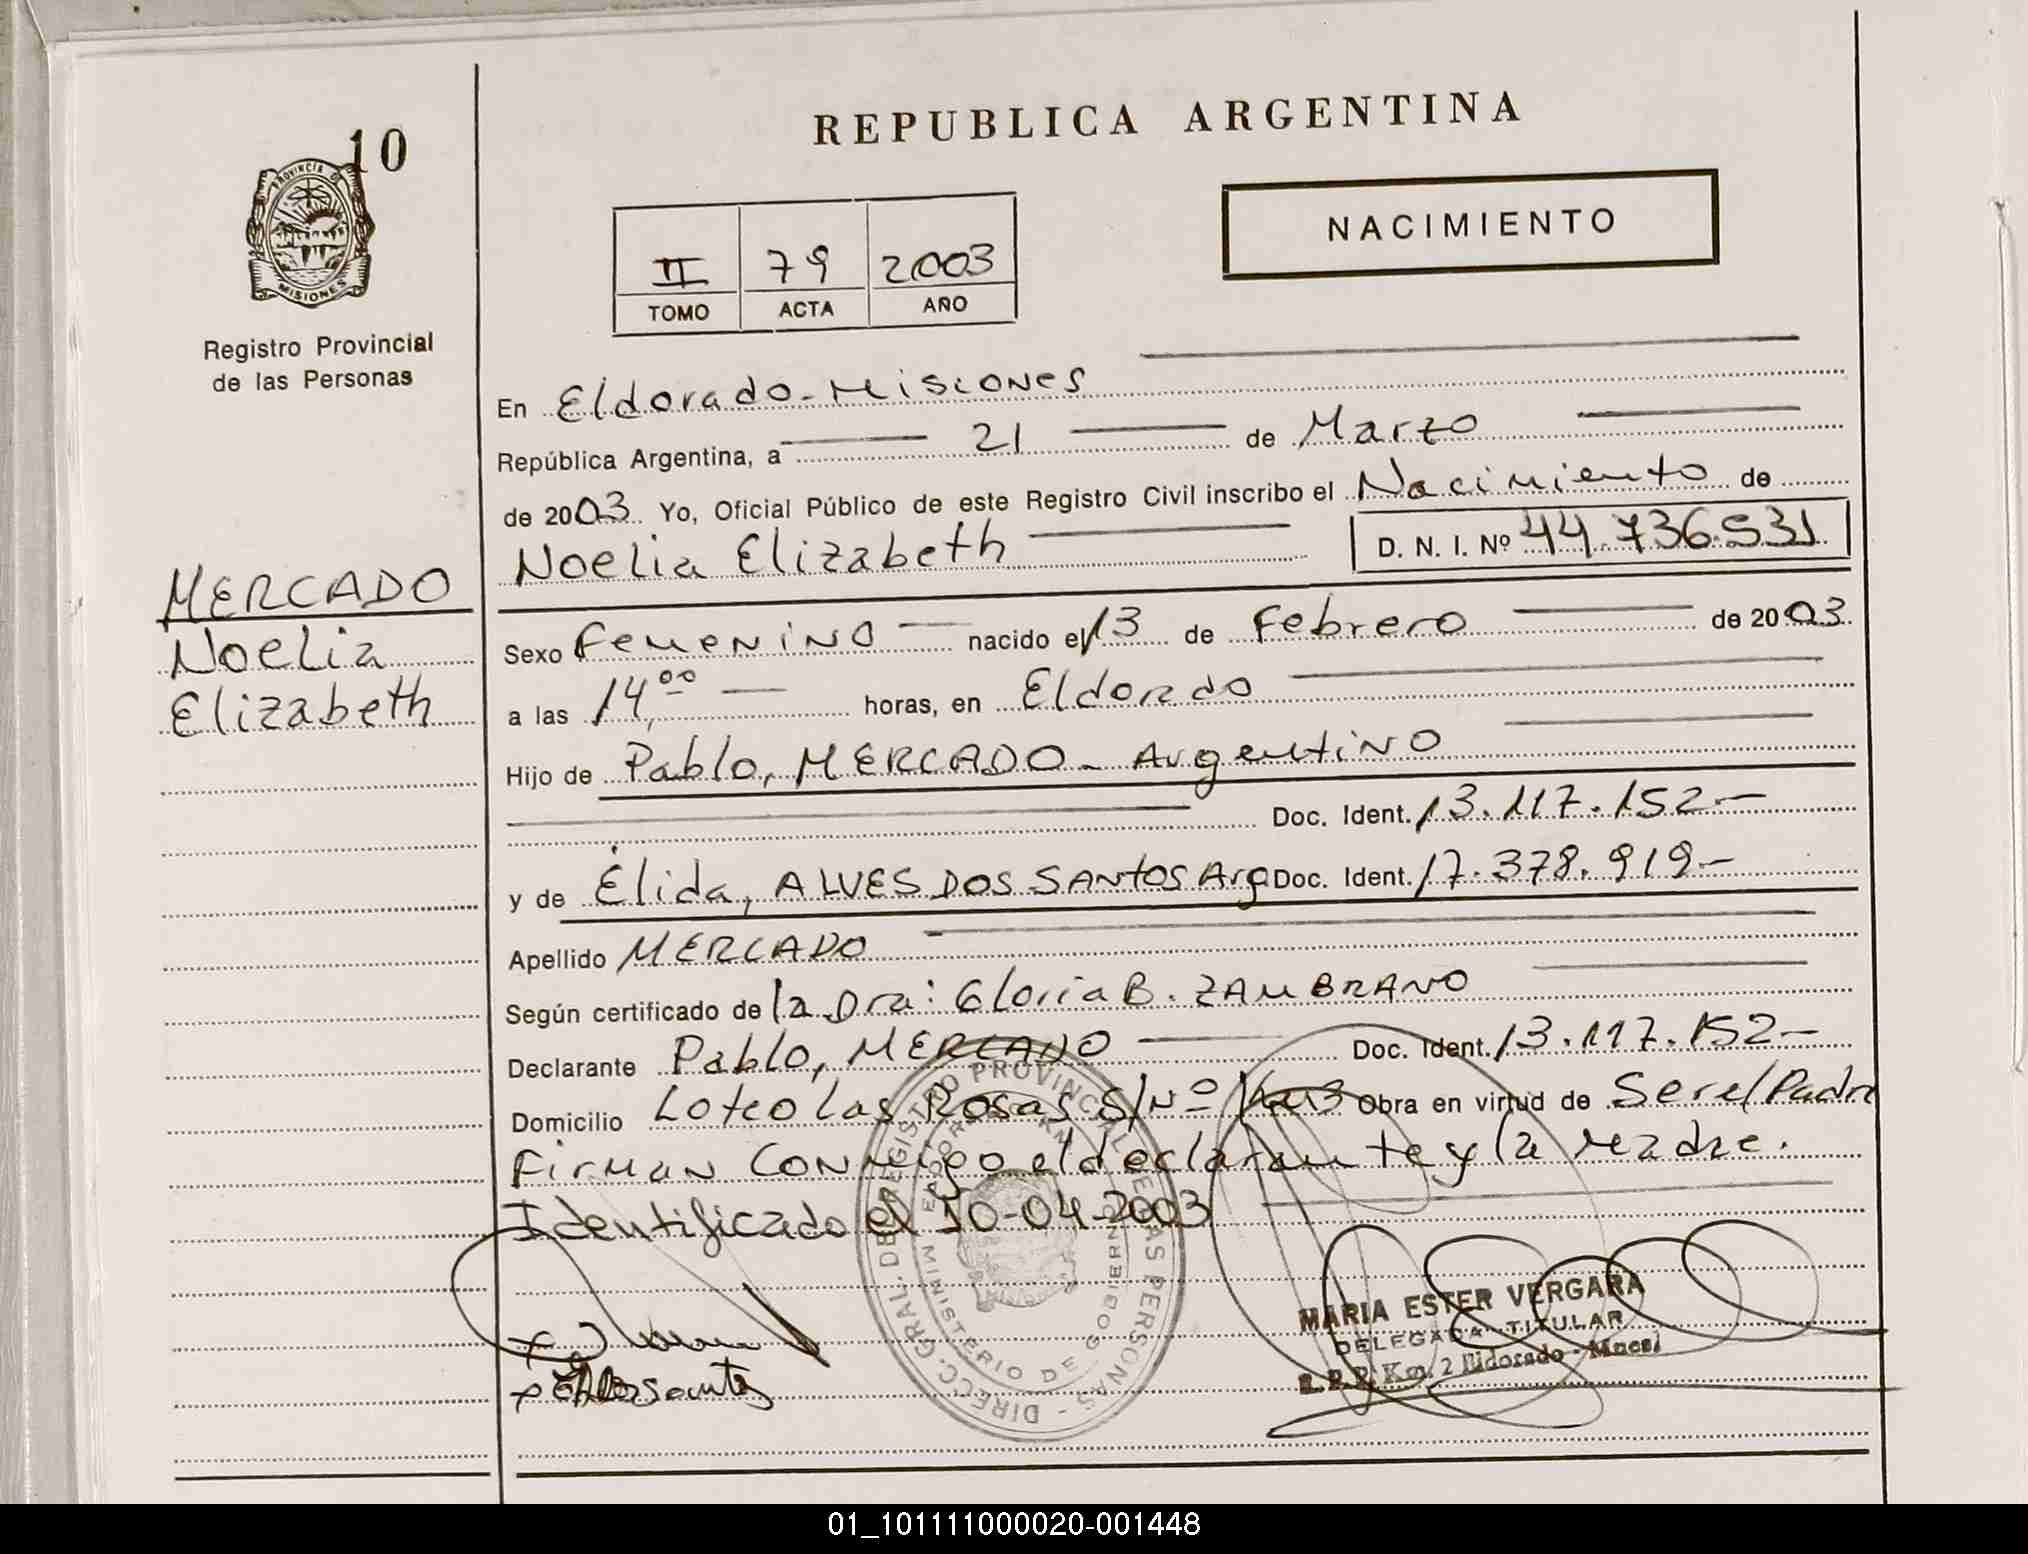 10
REPUBLICA ARGENTINA
NACIMIENTO
PROVINCIA DE
MISIONES
Registro Provincial
de las Personas
II 79 2003
TOMO ACTA AÑO
En Eldorado - Misiones
República Argentina, a 21 de Marzo
de 2003 Yo, Oficial Público de este Registro Civil inscribo el Nacimiento de
Noelia Elizabeth D. N. I. Nº 44.736.531
MERCADO
Noelia
Elizabeth
Sexo Femenino nacido el 13 de Febrero de 2003
a las 14,00 horas, en Eldorado
Hijo de Pablo, MERCADO - Argentino
Doc. Ident. 13.117.152-
y de Élida, ALVES DOS SANTOS Arg Doc. Ident. 17.378.919-
Apellido MERCADO
Según certificado de la Dra: Gloria B. ZAMBRANO
Declarante Pablo, MERCADO Doc. Ident. 13.117.152-
Domicilio Loteo Las Rosas S/Nº Obra en virtud de Ser el Padre
Firman conmigo el declarante y la Madre.
Identificado el 10-04-2003
DIRECC. GRAL. DEL REGISTRO PROVINCIAL DE LAS PERSONAS -
MINISTERIO DE GOBIERNO
MARIA ESTER VERGARA
DELEGADA TITULAR
R.P.P. Km. 2 Eldorado - Mnes
01_101111000020-001448